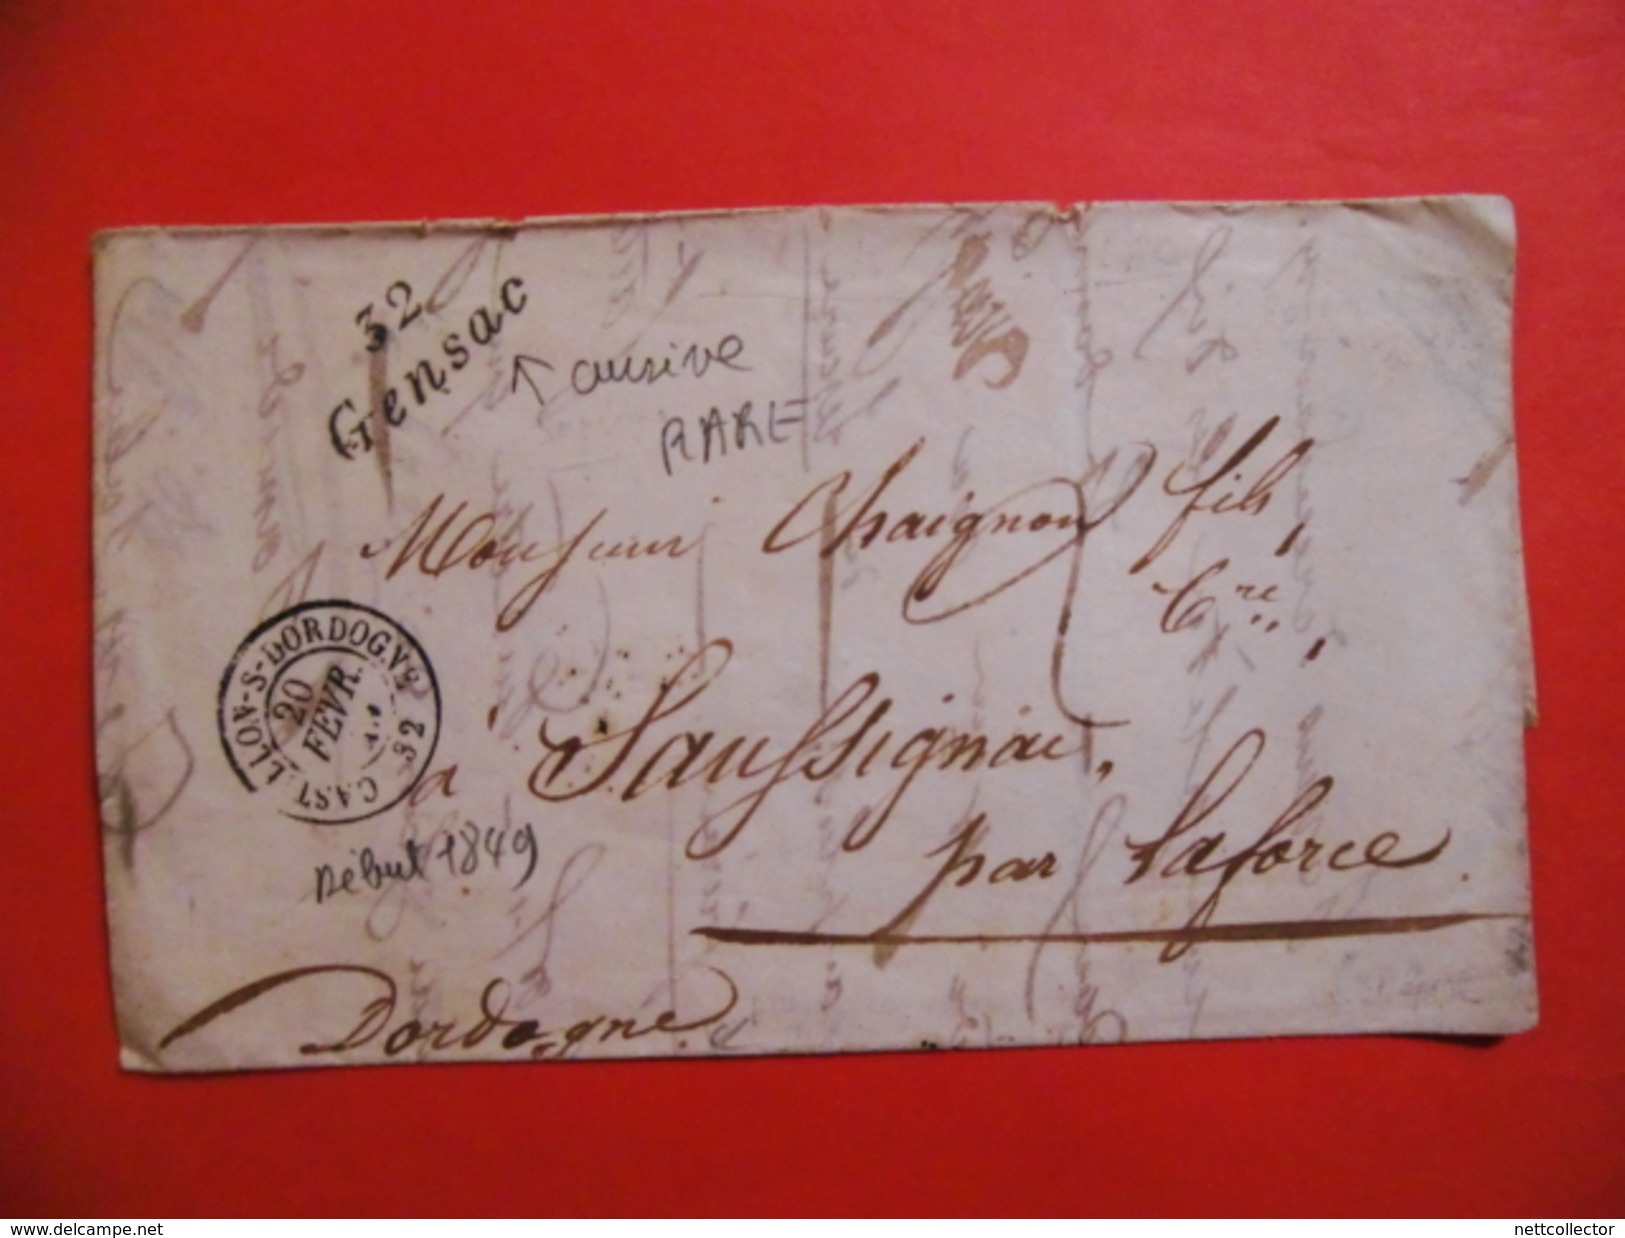 32
Gensac
↑ cursive
RARE
Monsieur Chaignon fils,
Cre,
CASTILLON-S-DORDOG.NE 32
20
FEVR.
à Saussignac,
par Laforce.
Début 1849
Dordogne
www.delcampe.net
nettcollector